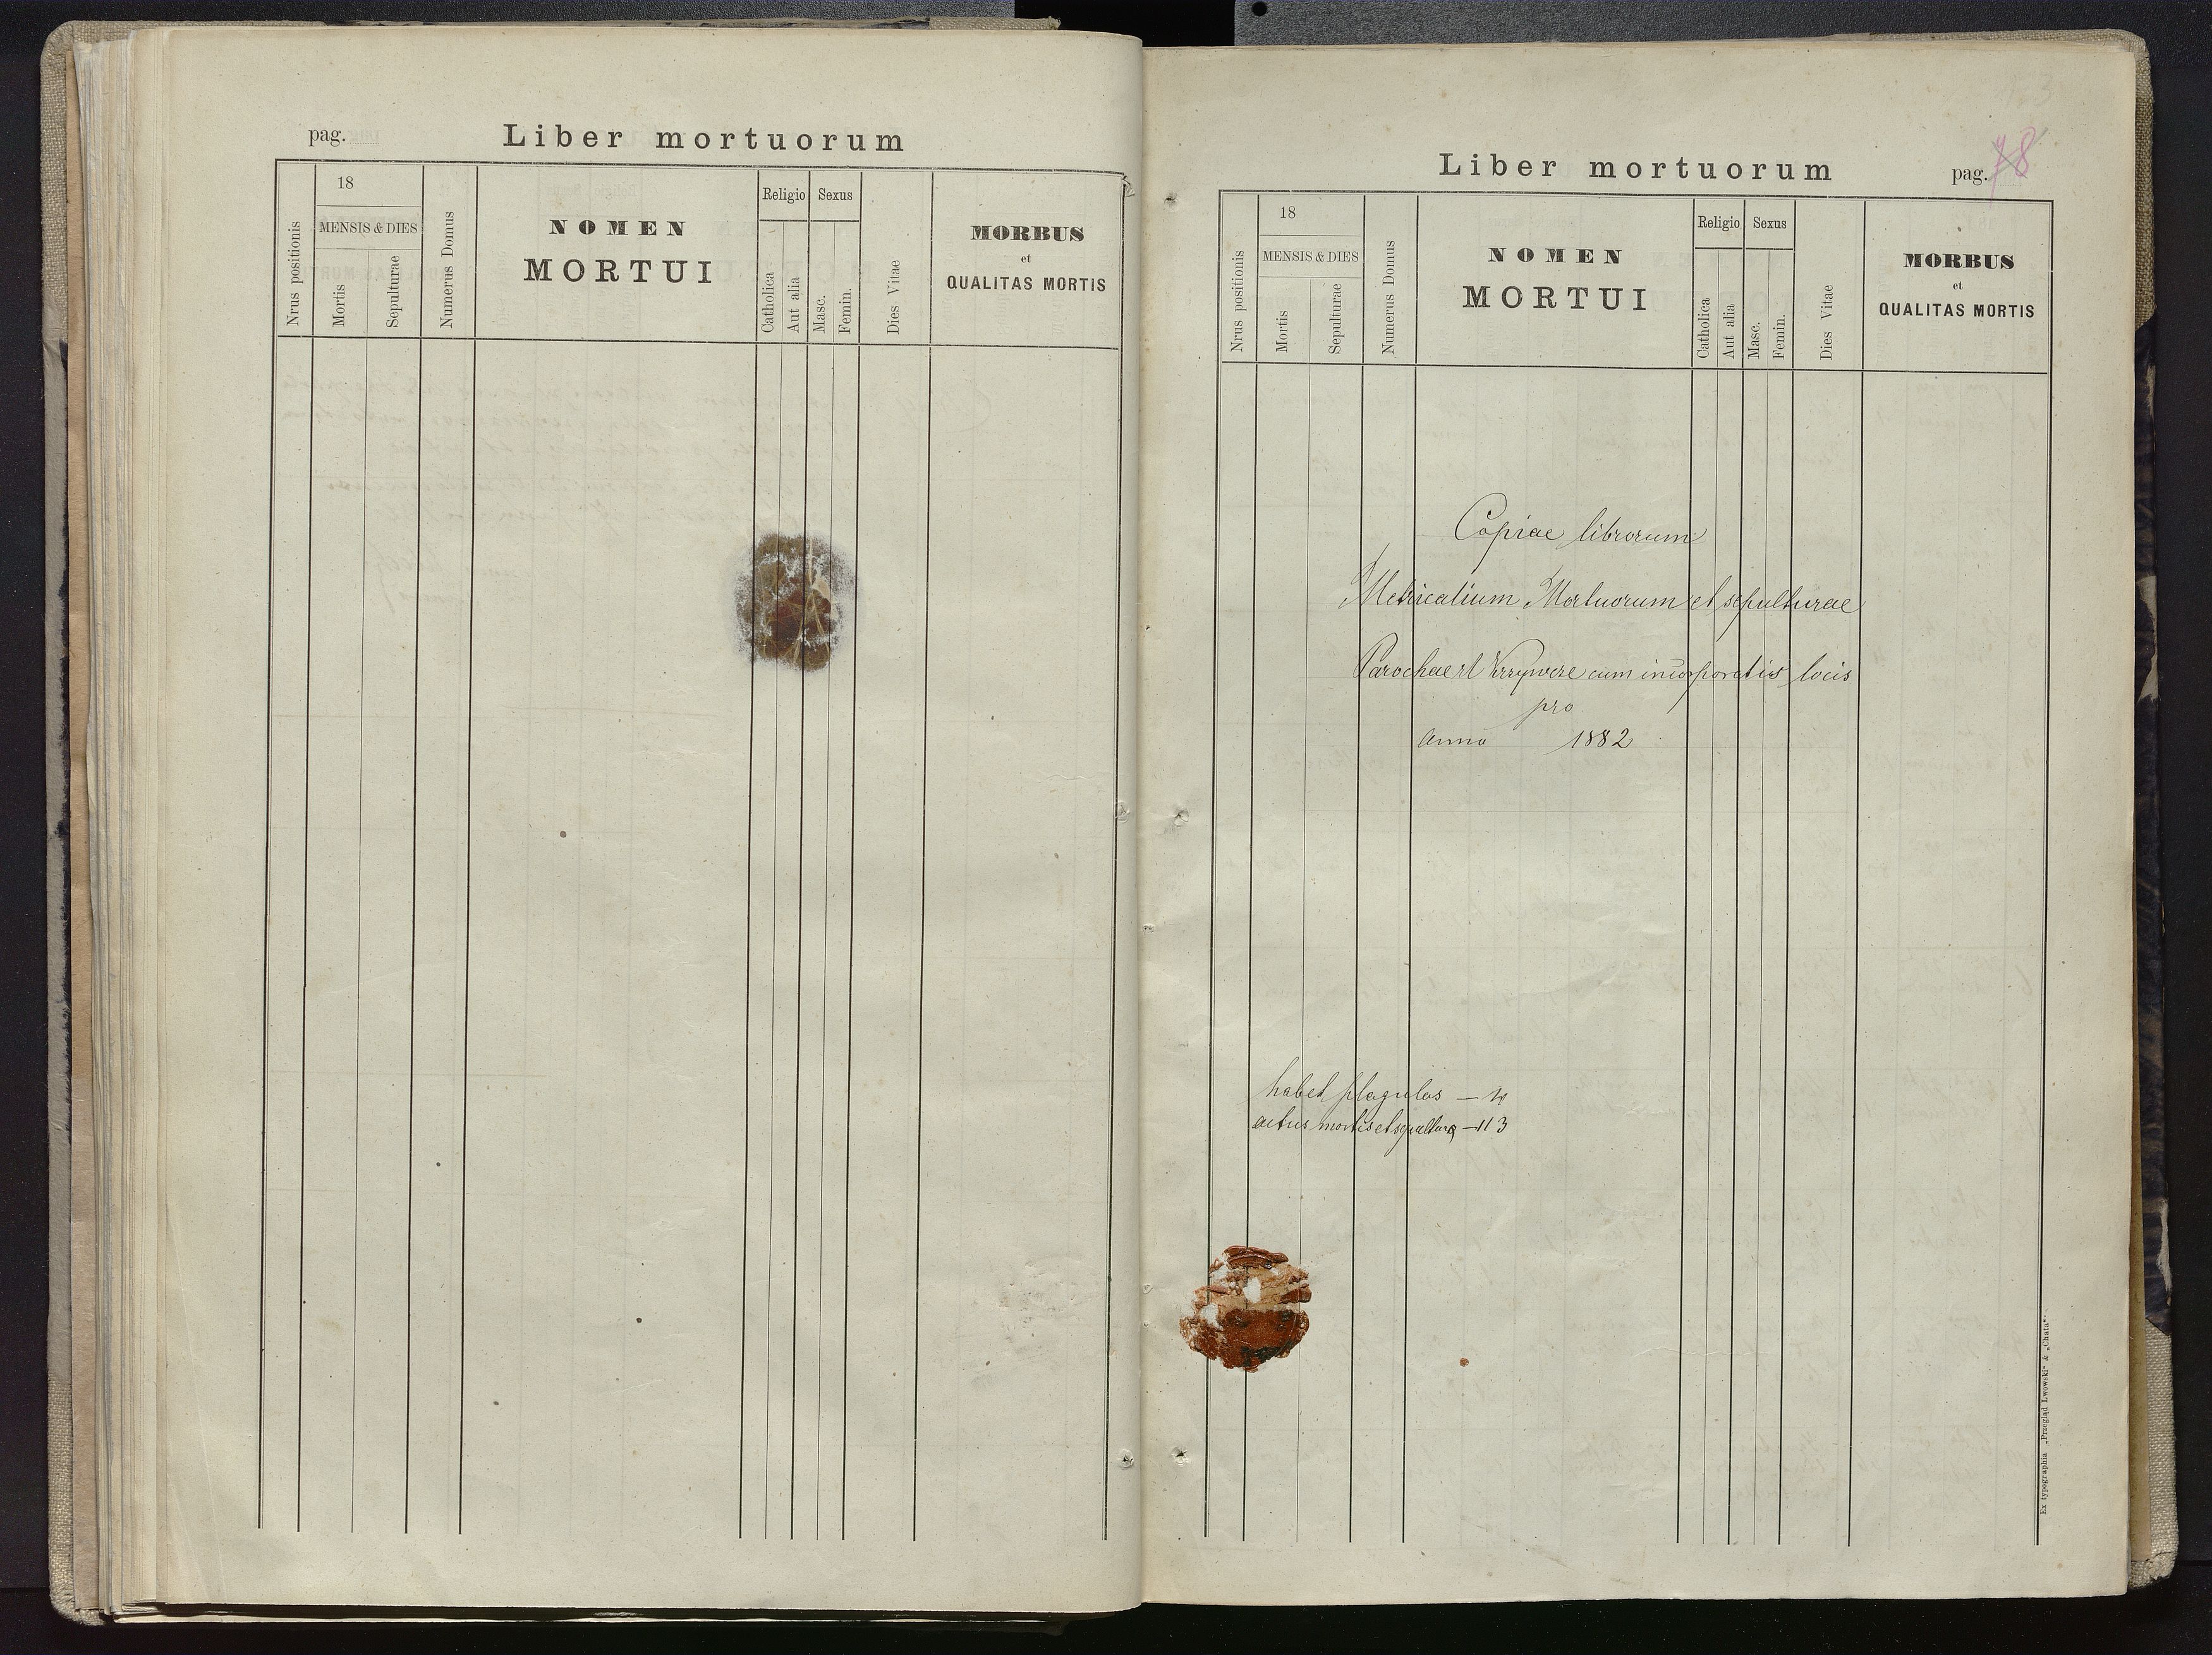 pag. Liber mortuorum
Nrus positionis
18
MENSIS & DIES
Mortis
Sepulturae
Numerus Domus
NOMEN
MORTUI
Religio
Catholica
Aut alia
Sexus
Masc.
Femin.
Dies Vitae
MORBUS
et
QUALITAS MORTIS
Liber mortuorum pag. 78
Nrus positionis
18
MENSIS & DIES
Mortis
Sepulturae
Numerus Domus
NOMEN
MORTUI
Religio
Catholica
Aut alia
Sexus
Masc.
Femin.
Dies Vitae
MORBUS
et
QUALITAS MORTIS
Copiae librorum
Metricalium Mortuorum et sepulturae
cum incorporatis locis
pro
anno 1882
habet plagulas —
actus mortis et sepulturae — 113
Ex typographia „Przegląd Lwowski“ & „Chata“.